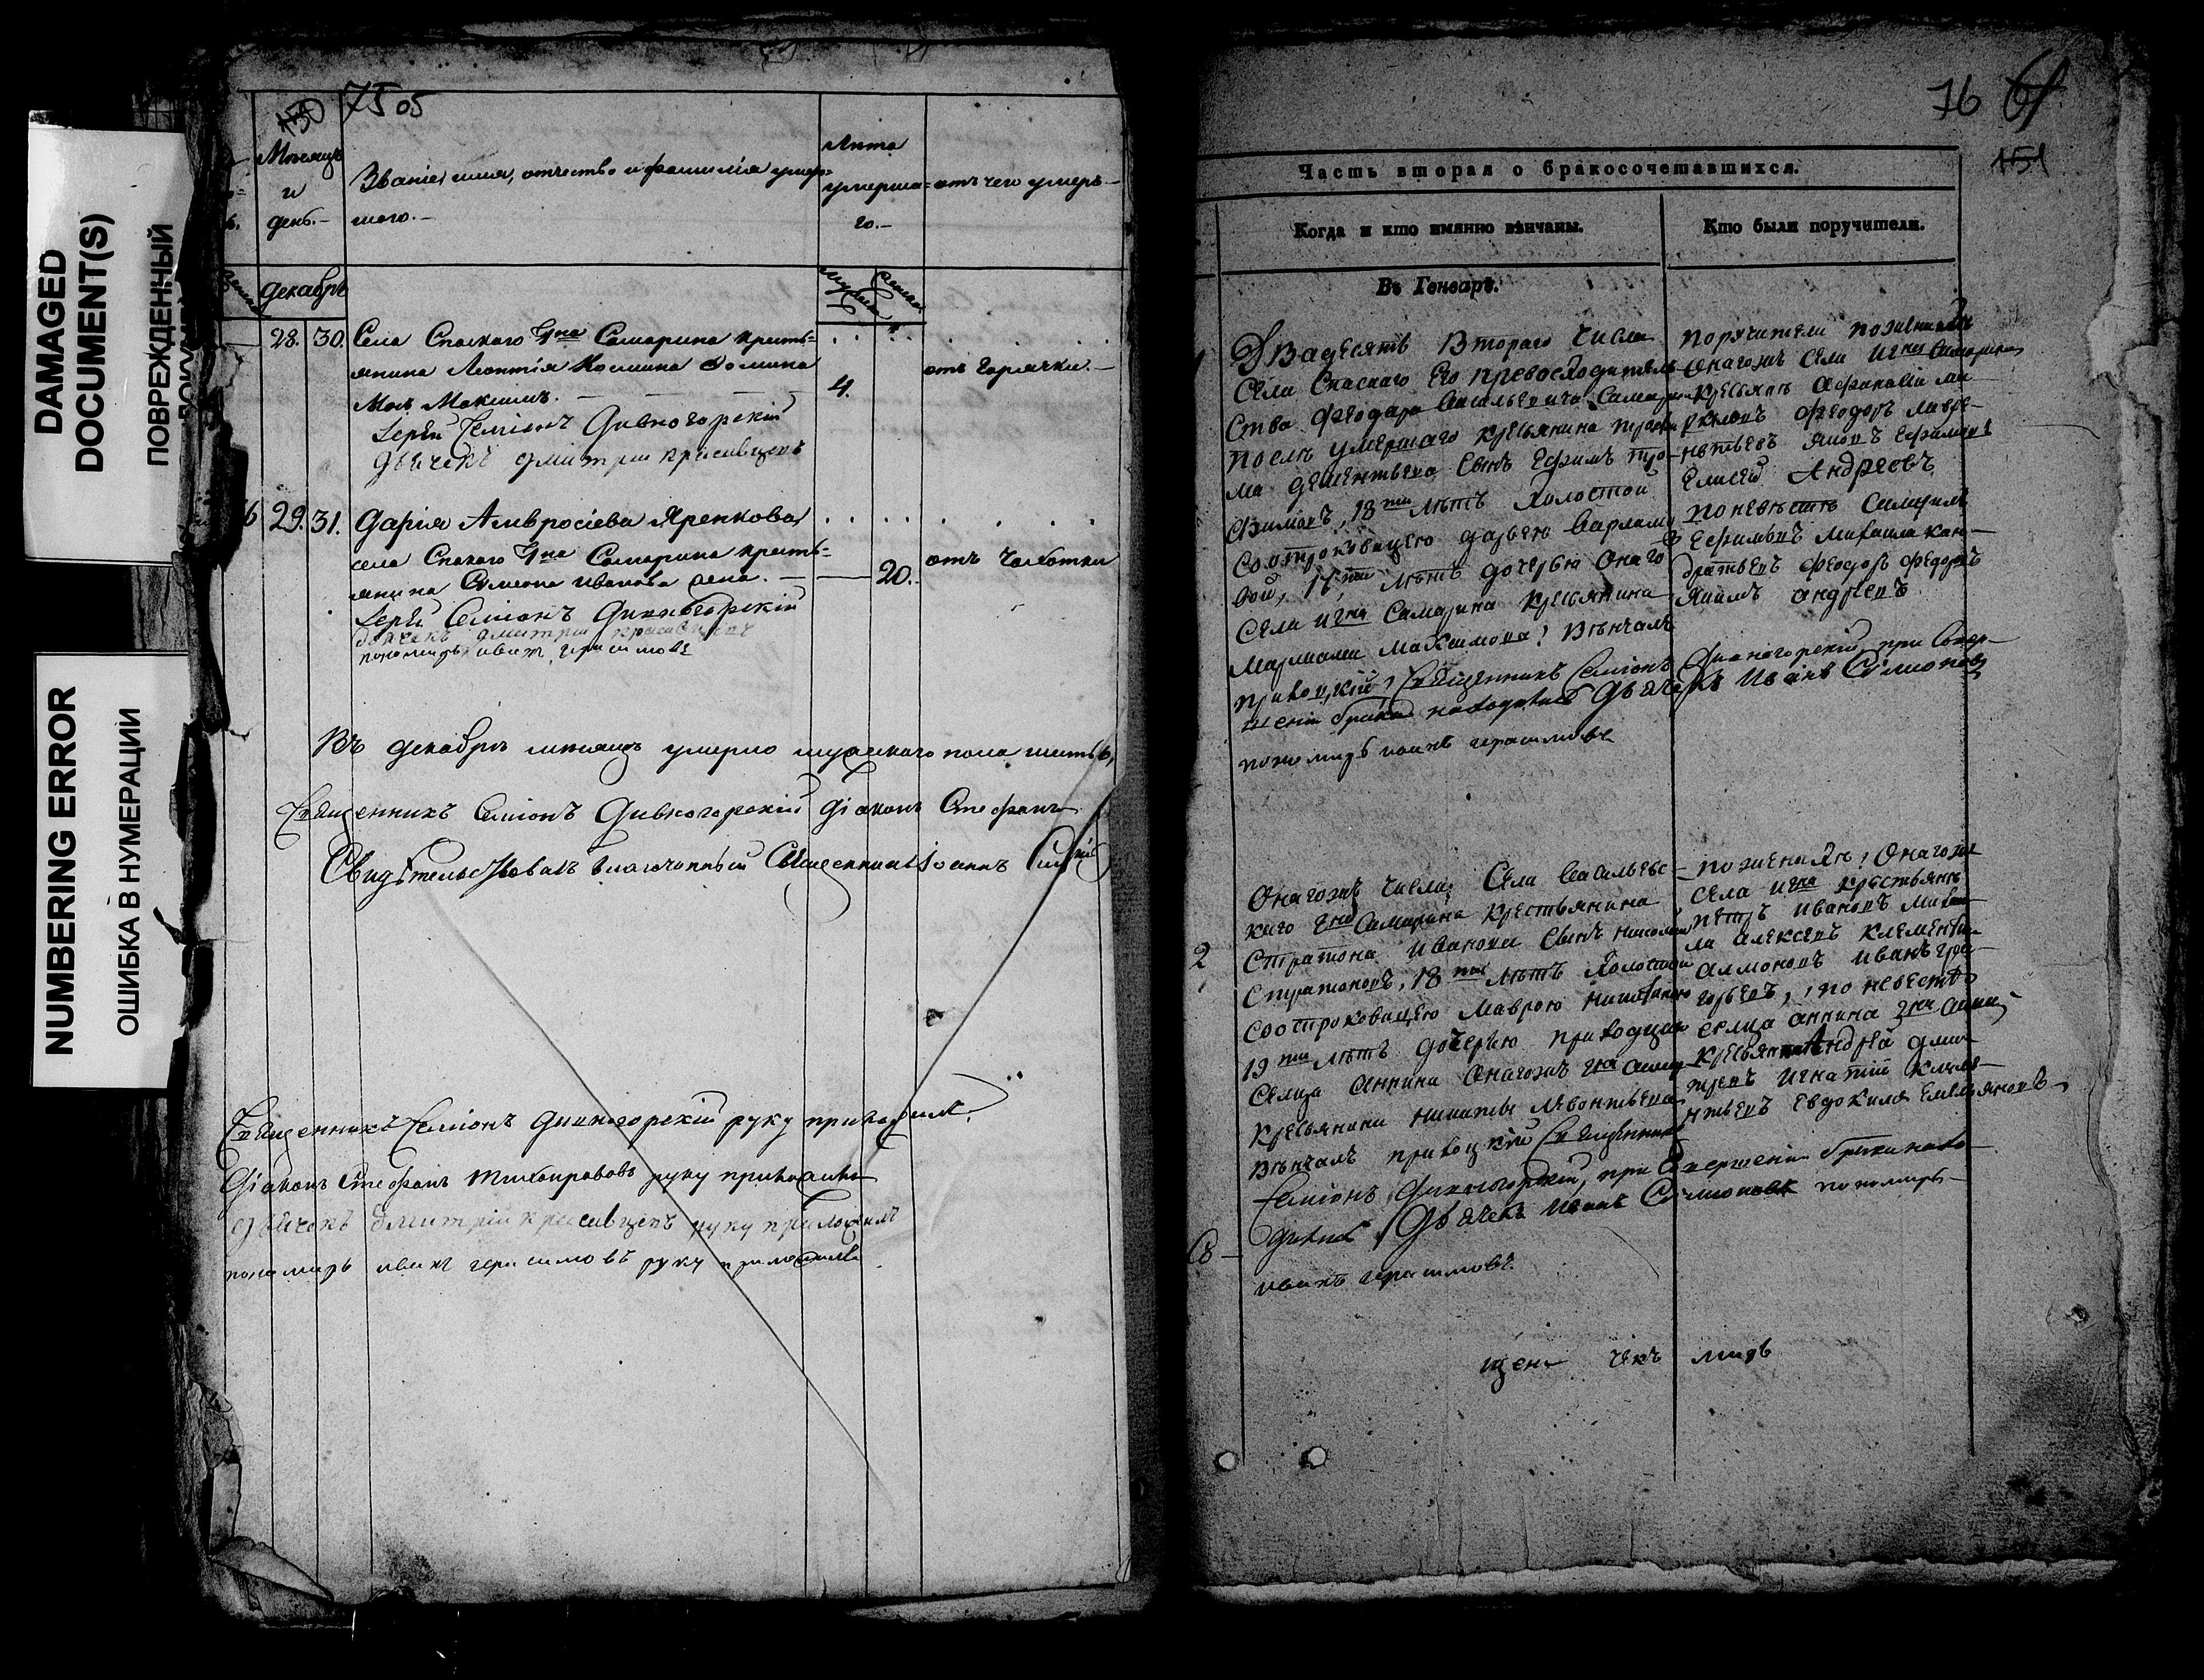 DAMAGED
DOCUMENT(S)
ПОВРЕЖДЕННЫЙ
NUMBERING ERROR
ОШИБКА В НУМЕРАЦИИ
150 75 05
Месяцъ
и
день.
Званіе, имя, отчество и фамилія умер-
шаго.
Лета
умерша-
го.
отъ чего умеръ
Декабрь
28. 30. Села Спаскаго Гна Самарина кресть-
янина Леонтія Космина Фомина
сынъ Максимъ.
4.
отъ горячки.
Іерей Семіонъ Дивногорскій
Дьячекъ Дмитрій Красивцевъ
29. 31. Дарія Амвросіева Яренкова
села Спаскаго Гна Самарина кресть-
янина Симеона Иванова жена.
20.
отъ чахотки
Іерей Семіонъ Дивногорскій
дьячекъ Дмитрій Красивцевъ
пономарь иванъ герасимовъ
Въ декабре месяце умерло мужскаго пола шесть 6,
Священникъ Семіонъ Дивногорскій Діаконъ Стефанъ
Свидетельствовалъ благочинный Священникъ Іоаннъ
Священникъ Семіонъ Дивногорскій руку приложилъ.
Діаконъ Стефанъ Тихонравовъ руку приложилъ
дьячекъ Дмитрій Красивцевъ руку приложилъ
пономарь иванъ герасимовъ руку приложилъ
76
151
Часть вторая о бракосочетавшихся.
Когда и кто имянно вѣнчаны.
Кто были поручители.
Въ Генварѣ.
Двадесять Втораго Числа
Села Спаскаго Его превосходитель-
Ства Феодора Васильевича Самарина
после умершаго крестьянина
ма дементьева Сынъ Ефимъ Тро-
фимовъ, 18ти летъ Холостой
Соотроковицею дарьею Варламо-
вой, летъ дочерью Онаго
Села Гна Самарина крестьянина
Максимова; Венчалъ
приходскій Священникъ Семіонъ Дивногорскій, при Совер-
шеніи брака находились Дьячекъ Иванъ Симионовъ
пономарь иванъ герасимовъ
поручители по женихе
Онагожъ Села Гна Самарина
крестьяне
Феодоръ Лавре-
нтьевъ Ефимовъ
Елисей Андреевъ
по невесте
Ефимовъ Михаила Кон-
дратьевъ Феодоръ Федоровъ
Якимъ андреевъ
2
Онагожъ Числа Села Васильевс-
каго Гна Самарина крестьянина
Стратона Иванова Сынъ
Стратоновъ, 18ти летъ Холостой
Соотроковицею Маврою Никитиною
19ти летъ дочерью приходцкаго
Сельца Аннина Онагожъ Гна
крестьянина Никиты Левонтьева
Венчалъ приходцкій Священникъ
Семіонъ Дивногорскій, при Совершеніи брака нахо-
дились Дьячекъ Иванъ Симионовъ пономарь
иванъ герасимовъ.
по женихе, Онагожъ
села Гна крестьяне
петръ Ивановъ Михай-
ла Алексевъ Клементъ
Иванъ Гри-
горьевъ, по невесте
сельца аннина
крестьяне Андрей дми-
тревъ Игнатій Клеме-
нтьевъ Евдокимъ Емельяновъ
щен чекъ марь